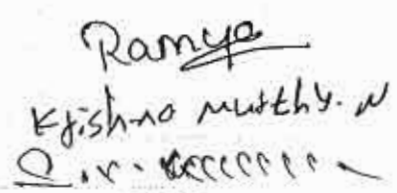 Ramya
Krishna Murthy. N